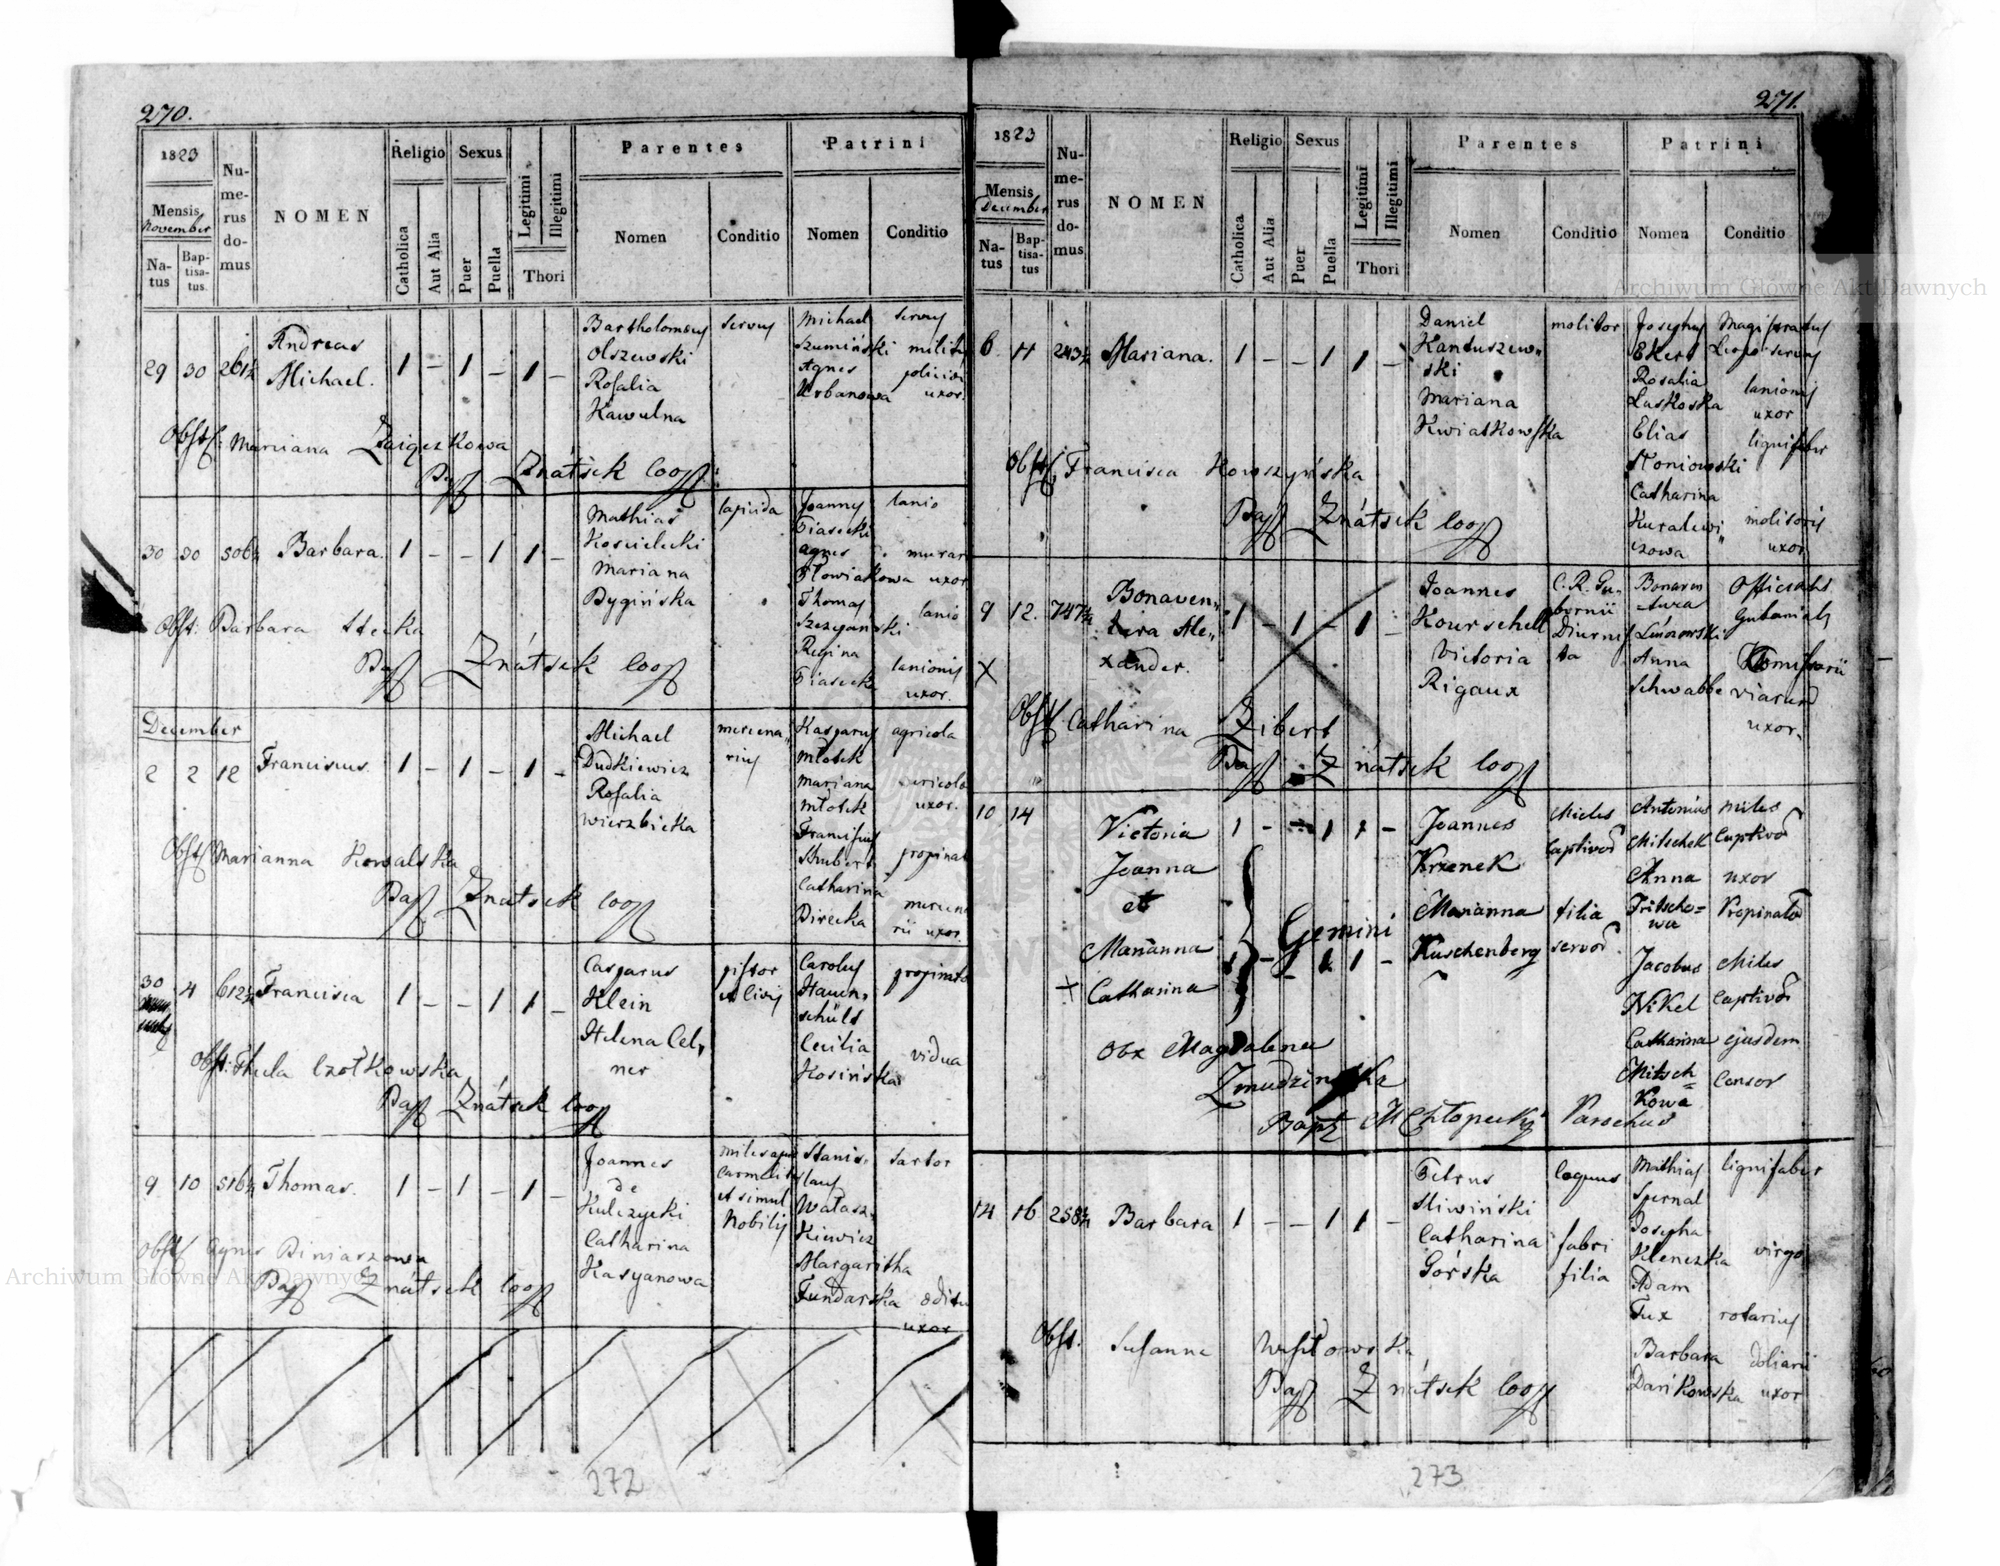 270.
1823
Mensis
November
Na-
tus
Bap-
tisa-
tus.
Nu-
me-
rus
do-
mus
NOMEN
Religio
Catholica
Aut Alia
Sexus
Puer
Puella
Legitimi
Illegitimi
Thori
Parentes
Nomen
Conditio
Patrini
Nomen
Conditio
29 30 261¼ Andreas
Michael.
1 – 1 – 1 –
Bartholomeus
Olszewski
Rosalia
Kawulna
servus
Michael
Szumiński
Agnes
Urbanowa
servus
uxor.
Obst: Marciana
Bapt Znátsek Coop:
30 30 506¼ Barbara. 1 – – 1 1 –
Mathias
Kościelecki
Mariana
Pyginska
lapicida
Joannes
Piasecki
Agnes
Thomas
Regina
Piasecka
lanio
murar
uxor
lanio
lanionis
uxor.
Obst: Barbara Stecka
Bapt Znátsek Coop
December
2 2 12 Franciscus. 1 – 1 – 1 –
Michael
Dudkiewicz
Rosalia
Wierzbicka
mercena„
rius
Kasparus
Młotek
Mariana
Młotek
Franciscus
Catharina
agricola
agricola
uxor.
propinat
mercena
rii uxor.
Obst Marianna Kowalska
Bapt Znátsek Coop
30 4 612¼ Francisca 1 – – 1 1 –
Casparus
Klein
Helena Cel„
ner
pistor
et civis
Carolus
Hauen„
schüld
Cecilia
Kosińska
propinator
vidua
Obst: Thecla Czołkowska
Bapt Znátsek Coop
9 10 516¼ Thomas. 1 – 1 – 1 –
Joannes
de
Kulczycki
Catharina
Kasyanowa
miles apud
Carmelitas
et simul
Nobilis
Stanis„
laus
Watasz„
kiewicz
Margaritha
Fundarska
sartor
uxor
Obst Agnes Piniaszowa
Bapt Znátsek Coop
272
271.
1823
Mensis
December
Na-
tus
Bap-
tisa-
tus
Nu-
me-
rus
do-
mus
NOMEN
Religio
Catholica
Aut Alia
Sexus
Puer
Puella
Legitimi
Illegitimi
Thori
Parentes
Nomen
Conditio
Patrini
Nomen
Conditio
6 11 243¼ Mariana. 1 – – 1 1 –
Daniel
Kantuszew„
ski
Mariana
Kwiatkowska
molitor
Josephus
Ekert
Rosalia
Laskoska
Elias
Słoniowski
Catharina
Kuralewi„
czowa
Magistratus
servus
lanionis
uxor
lignifaber
molitoris
uxor
Obst Francisca Kowszyńska
Bapt Znátsek Coop
9 12. 747¼ Bonaven„
tura Ale„
xander.
1 – 1 – 1 –
X
Joannes
Kourschell
Victoria
Rigaux
C. R. Gu„
bernii
Diurnis
ta
Bonaven
tura
Anna
Schwabbe
Officialis
Gubernials
Comissarii
viarum
uxor.
Obst Catharina Zibert
Bapt Znátsek Coop
10 14 Victoria
Joanna
et
Marianna
Catharina
1 – – 1 1 –
Gemini
– – 1 1 –
Joannes
Krzenek
Marianna
Kuschenberg
Miles
Captivor
filia
servor
Antonius
Mitschek
Anna
Fritscho=
wa
Jacobus
Nikel
Catharina
Mitsch
=
Kowa
Miles
Captivor
uxor
Propinator
Miles
Captivor
ejusdem
Censor
Obx Magdalena
Zmudzinska
Bapt M Chłopecki Parochus
14 16 258¼ Barbara 1 – – 1 1 –
Petrus
Sliwiński
Catharina
Górska
coquus
fabri
filia
Mathias
Spernal
Josepha
Klenczka
Adam
Fux
Barbara
Dańkowska
lignifaber
virgo
rotarius
doliarii
uxor
Obst. Susanna
Bapt Znátsek Coop
273
Archiwum Główne Akt Dawnych
Archiwum Główne Akt Dawnych